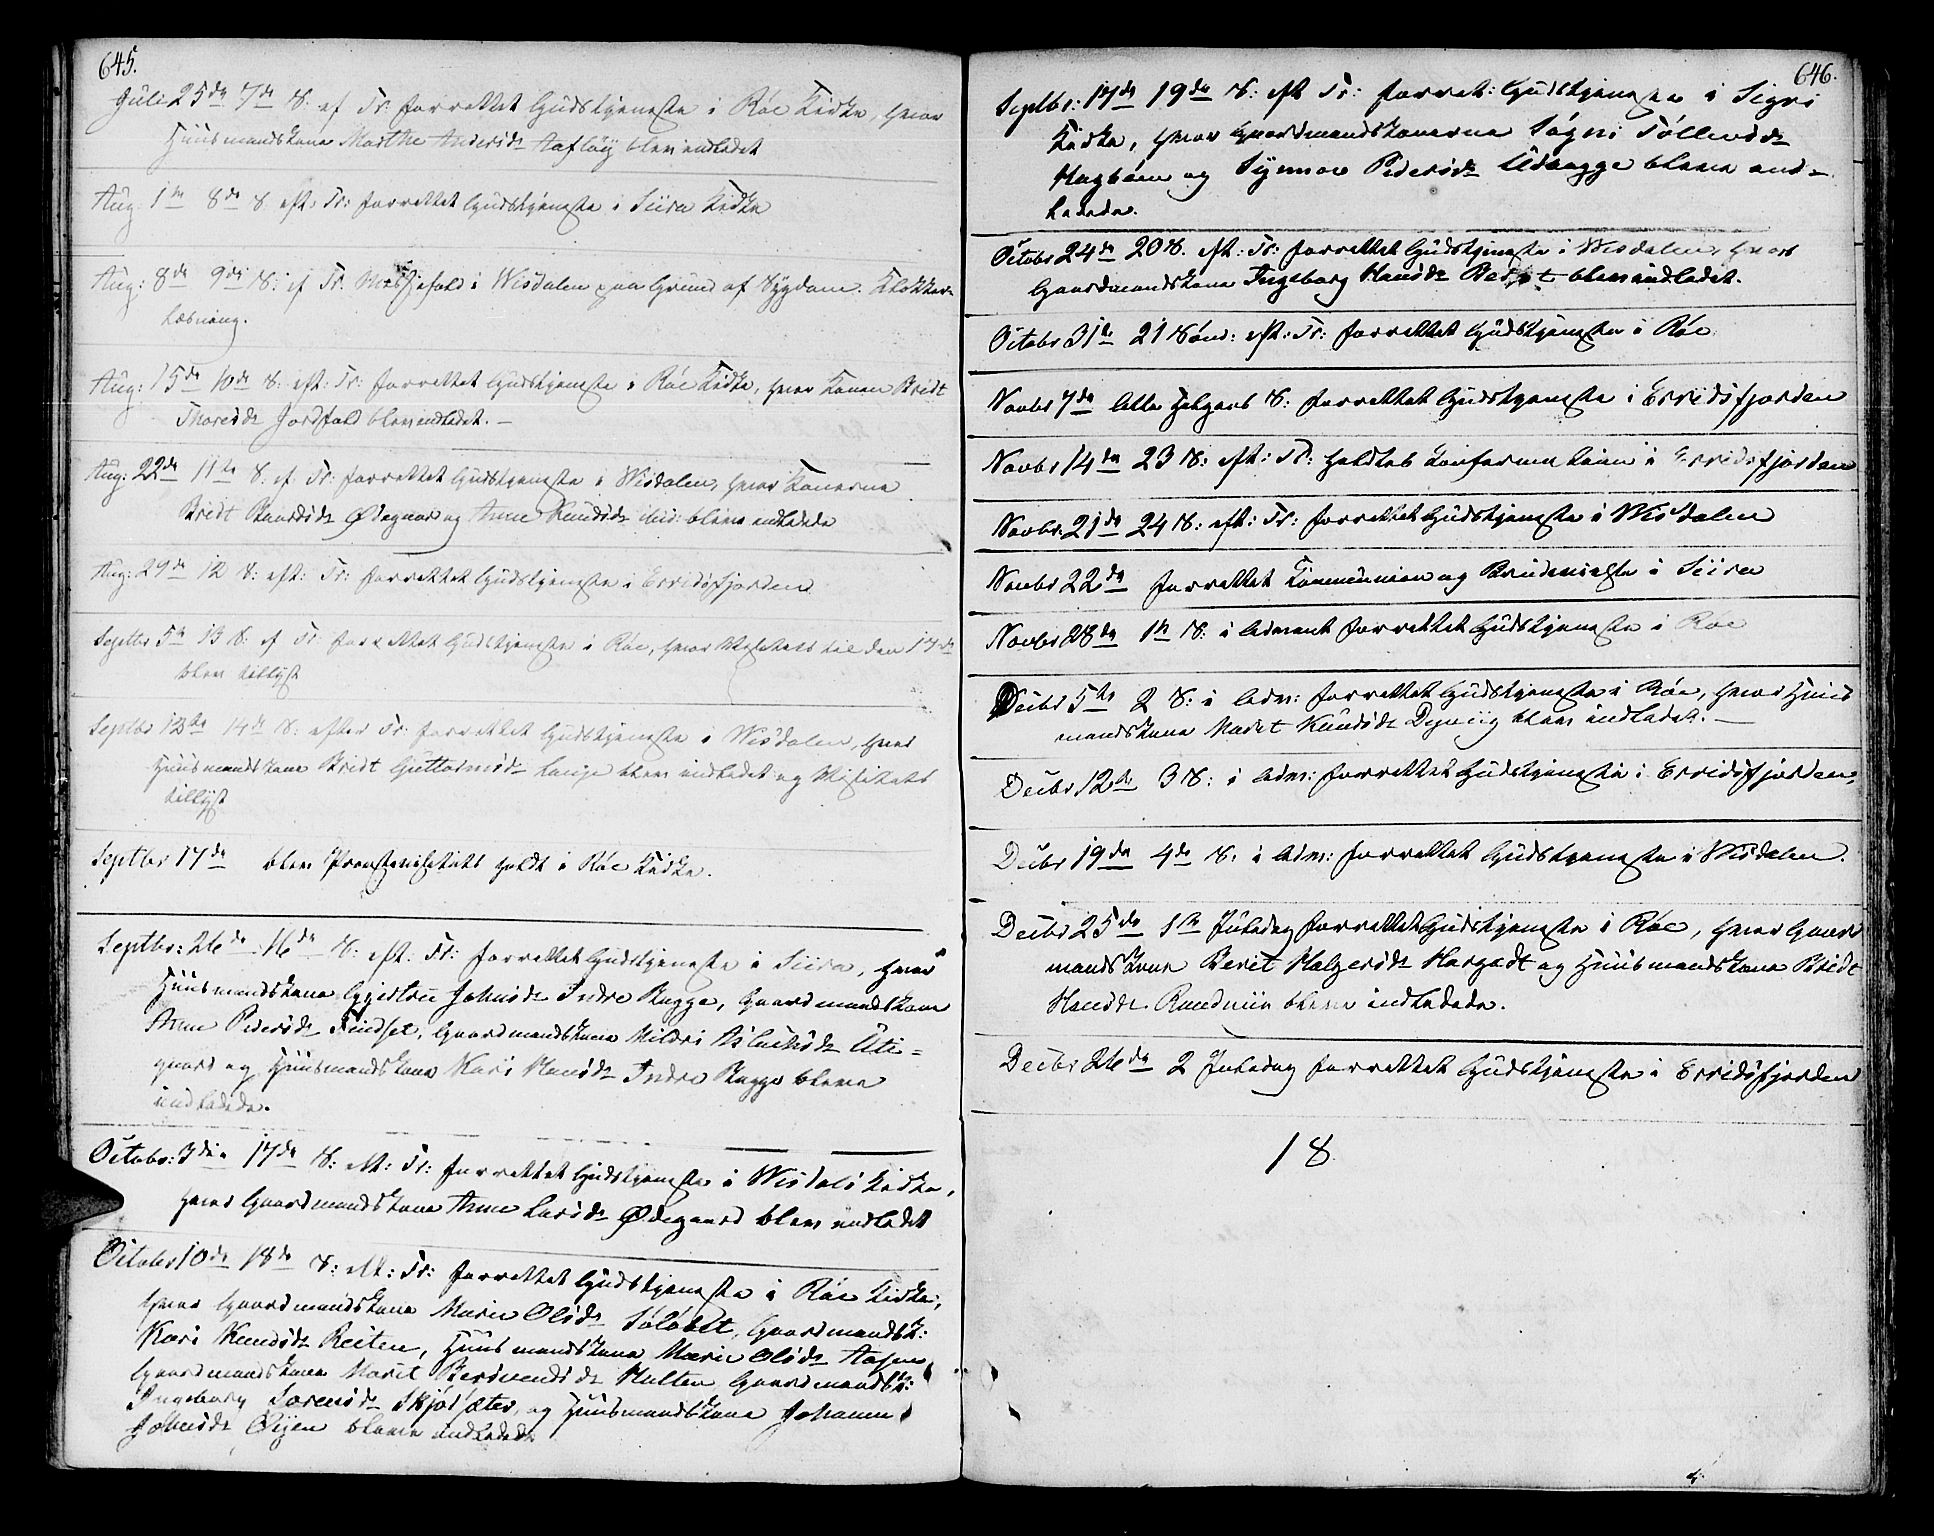 645.
Juli 25de 7de S. ef Tr: forrettet Gudstjeneste i Röe Kirke, hvor
Huusmandskone Marthe Andersdr Aafløy blev indledet
Aug. 1te 8de S. eft: Tr: forrettet Gudstjeneste i Siira Kirke
Aug: 8de 9de S: ef Tr. Messefald i Wisdalen paa Grund af Sygdom. Klokker-
læsning.
Aug: 15de 10de S: eft: Tr: forrettet Gudstjeneste i Röe Kirke, hvor Konen Bridt
Thoresdr Jordfald blev indledet. —
Aug: 22de 11te S. ef Tr: forrettet Gudstjeneste i Wisdalen, hvor Konerne
Bridt Ødegaard og Anne Knudsdr ibid: bleve indledede
Aug: 29de 12 S: eft: Tr: forrettet Gudstjeneste i Errisfjorden
Septbr 5te 13 S. ef Tr: forrettet Gudstjeneste i Röe, hvor Visitats til den 17de
blev tillyst
Septbr 12te 14de S: efter Tr: forrettet Gudstjeneste i Wisdalen, hvor
Huusmandskone Bridt Guttormsdr Lange blev indledet og Visitats
tillyst
Septbr 17de blev Provstevisitats holdt i Röe Kirke.
Septbr: 26de 16de S: eft. Tr: forrettet Gudstjeneste i Siira, hvor
Huusmandskone Gjertru Johnsdr Indre Bugge, Gaardmandskone
Anne Pedersdr Findset, Gaardmandskone Mildri Aslaksdr Uti-
gaard og Huusmandskone Kari Hansdr Indre Bugge bleve
indledede.
Octobr: 3die 17de S: eft: Tr: forrettet Gudstjeneste i Wisdals Kirke,
hvor Gaardmandskone Anne Larsdr Ødegaard blev indledet
Octobr 10de 18de S: eft: Tr: forrettet Gudstjeneste i Röe Kirke,
hvor Gaardmandskone Marie Olsdr Sølsbet, Gaardmandsk:
Kari Knudsdr Reiten, Huusmandskone Marie Olsdr Aasen,
Gaardmandskone Marit Hulten Gaardmandsk:
Ingeborg Sørensdr Skjørsæter, og Huusmandskone Johanne
Johnsdr Øyen bleve indledede
646.
Septbr: 19de S: eft Tr: forret: Gudstjeneste i Sigri
Kirke, hvor Gaardmandskonerne Sögni Tollevsdr
Hagbøen og Synnøv Pedersdr Udbugge bleve ind-
ledede.
Octobr 24de 20 S. eft: Tr: forrettet Gudstjeneste i Wisdalen, hvor
Gaardmandskone Ingeborg Hansdr blev indledet.
Octobr 31te 21 Sönd: eft: Tr: forrettet Gudstjeneste i Röe
Novbr 7de Alle Helgens S: forrettet Gudstjeneste i Erridsfjorden
Novbr 14de 23 S: eft: Tr: holdtes Confirmation i Erridsfjorden
Novbr: 21de 24 S: eft: Tr: forrettet Gudstjeneste i Wisdalen
Novbr 22de forrettet Communion og Brudevielse i Siira
Novbr 28de 1te S. i Advent forrettet Gudstjeneste i Röe
Decbr 5te 2 S: i Adv: forrettet Gudstjeneste i Röe, hvor Huus
mandskone Marit Knudsdr Djupviig blev indledet. —
Decbr 12te 3 S: i Adv: forrettet Gudstjeneste i Erridsfjorden,
Decbr 19de 4de S. i Adv: forrettet Gudstjeneste i Wisdalen.
Decbr 25de 1te Juledag forrettet Gudstjeneste i Röe, hvor Gaard
mandskone Berit Halgersdr Hargedt og Huusmandskone Bridt
Hansdr bleve indledede.
Decbr 26de 2 Juledag forrettet Gudstjeneste i Erridsfjorden
18